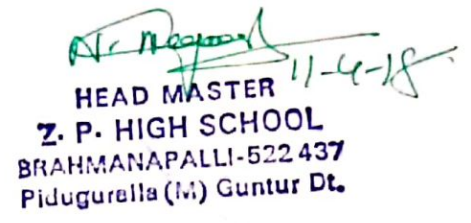 11-4-18
HEAD MASTER
Z. P. HIGH SCHOOL
BRAHMANAPALLI-522 437
Piduguralla (M) Guntur Dt.